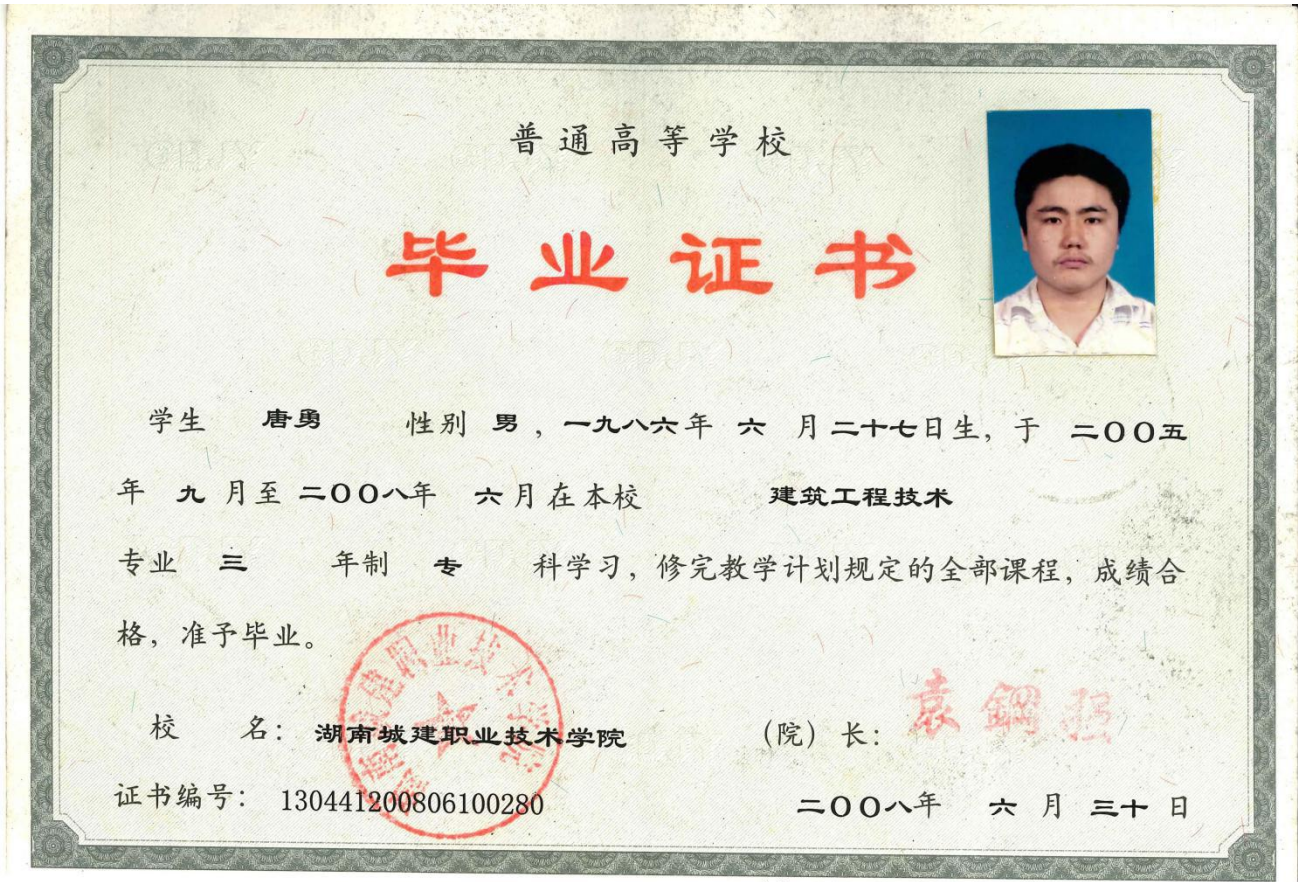 普通高等学校
毕业证书
学生 唐勇 性别 男，一九八六年 六 月 二十七日生，于 二〇〇五
年 九 月至 二〇〇八年 六月在本校 建筑工程技术
专业 三 年制 专 科学习，修完教学计划规定的全部课程，成绩合
格，准予毕业。
湖南城建职业技术学院
校 名：湖南城建职业技术学院 （院）长：袁鋼强
证书编号：130441200806100280 二〇〇八年 六 月 三十 日